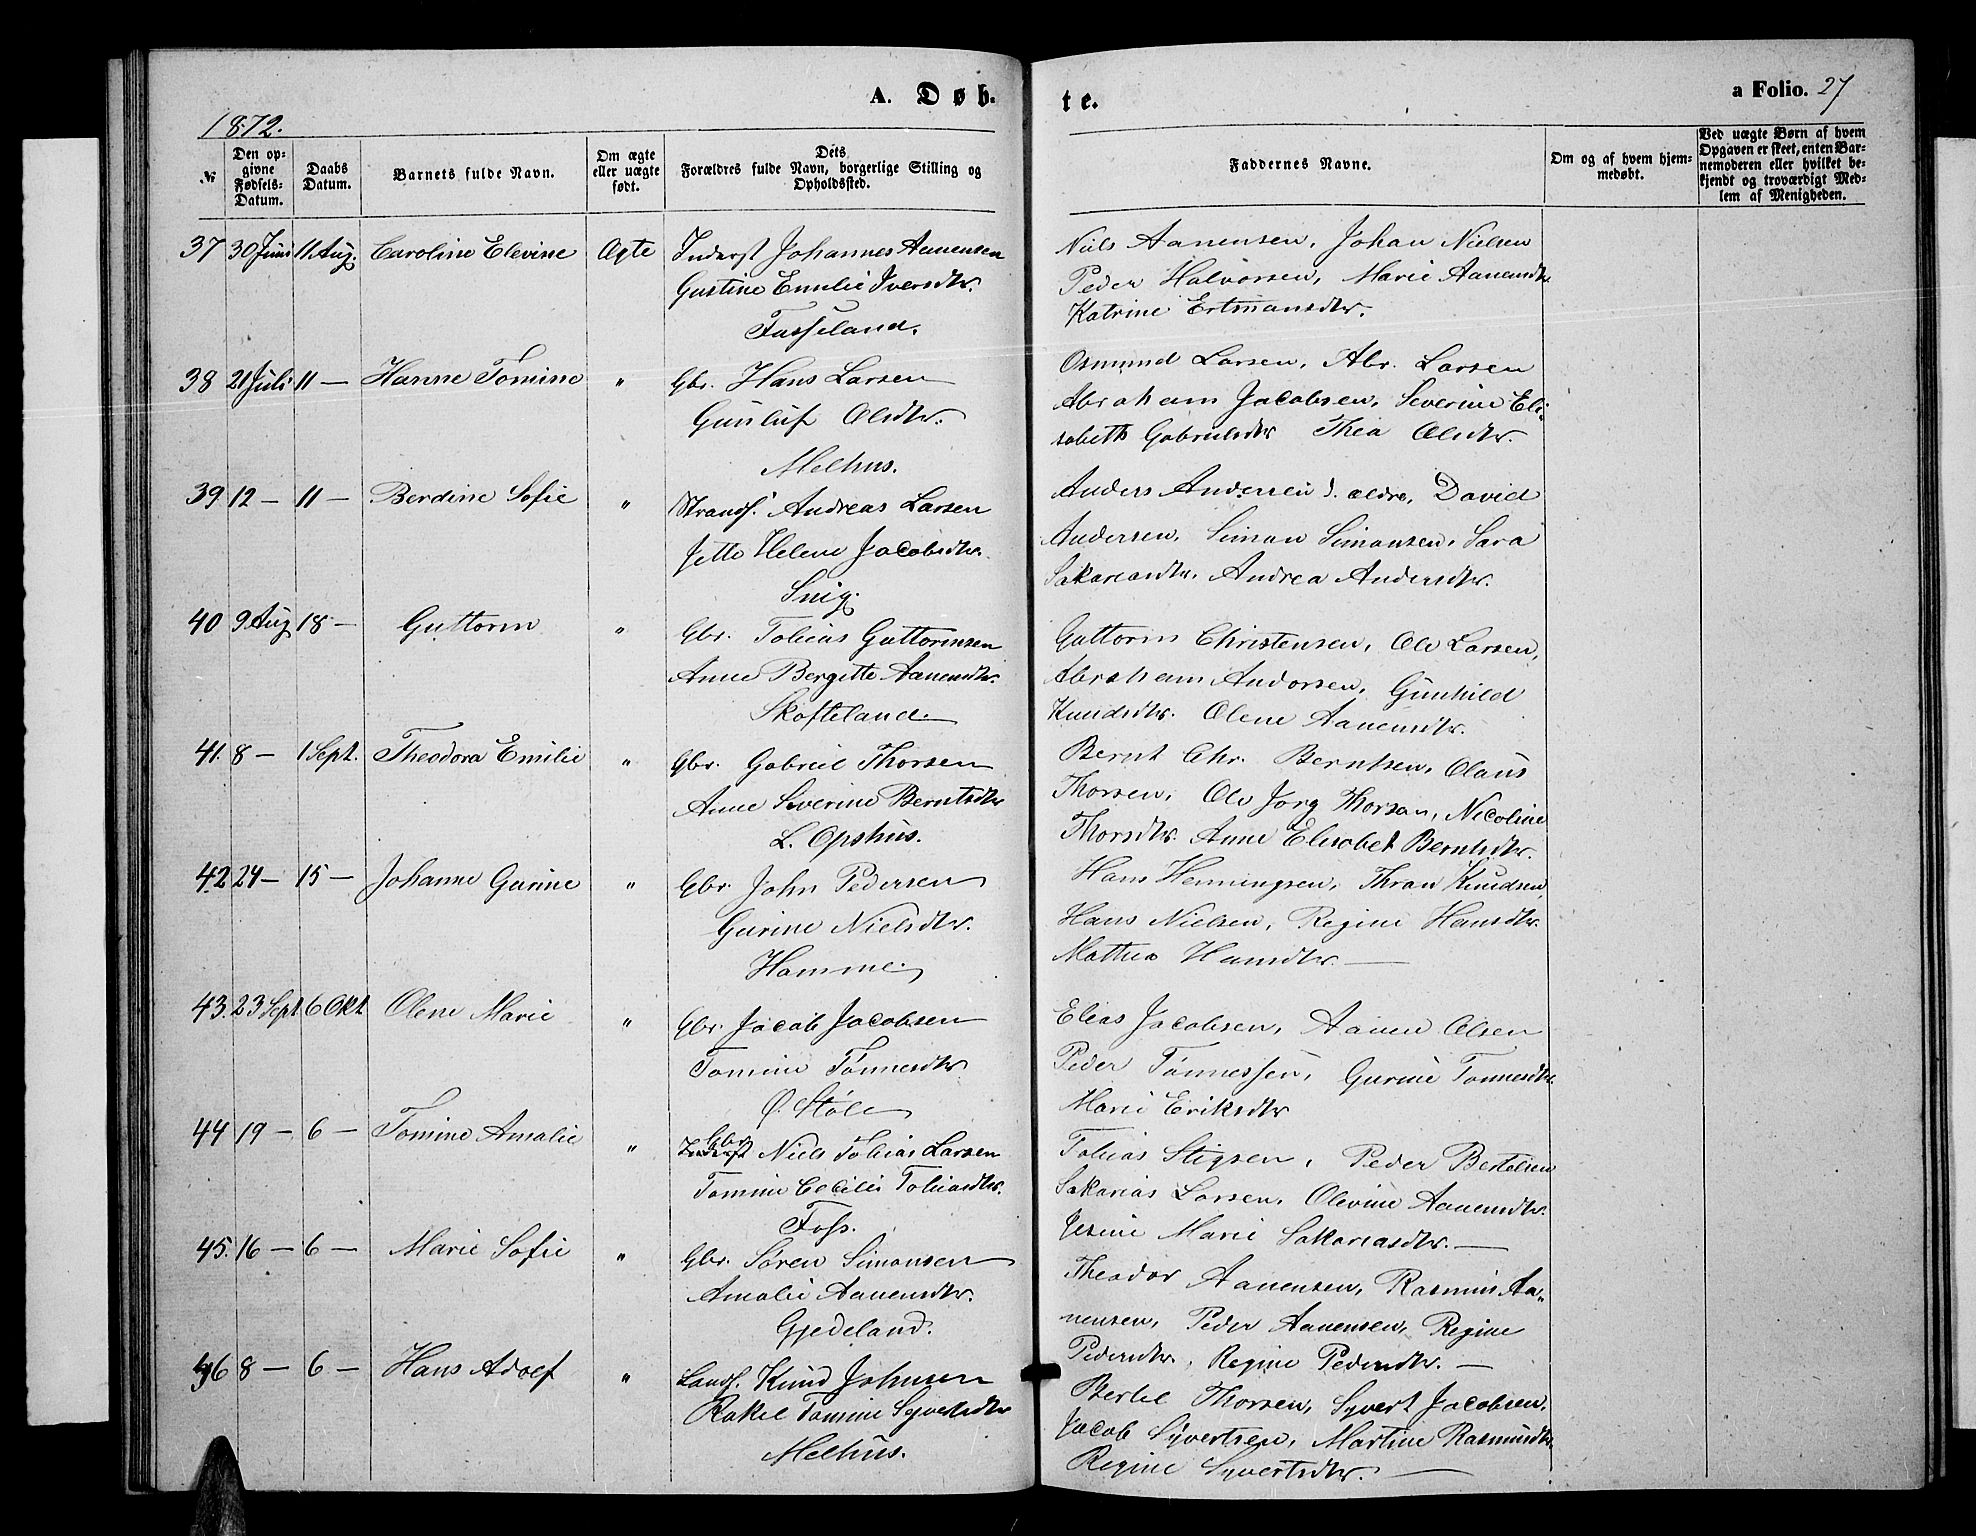 A. Døb-
te.
a Folio. 27
1872.
№
Den op-
givne
Fødsels-
Datum.
Daabs
Datum.
Barnets fulde Navn.
Om ægte
eller uægte
født.
Dets
Forældres fulde Navn, borgerlige Stilling og
Opholdssted.
Faddernes Navne.
Om og af hvem hjem-
medøbt.
Ved uægte Børn af hvem
Opgaven er skeet, enten Bar-
nemoderen eller hvilket be-
kjendt og troværdigt Med-
lem af Menigheden.
37 30 Juni 11 Aug. Caroline Elevine Ægte Inderst Johannes Aanensen
Gustine Emilie Iversdtr.
Fasseland.
Niels Aanensen, Johan Nielsen
Peder Halvorsen, Marie Aanensdtr
Katrine Ertmansdtr.
38 21 Juli 11 — Hanne Tomine " Gbr. Hans Larsen
Gunluf Olsdtr.
Melhus.
Osmund Larsen, Abr. Larsen
Abraham Jacobsen, Severine Eli-
sabeth Gabrielsdtr Thea Olsdtr.
39. 12 — 11 — Berdine Sofie " Strands. Andreas Larsen
Jette Helene Jacobsdtr.
Snig.
Anders Andersen d. ældre, David
Andersen, Simon Simonsen, Sara
Sakariasdtr, Andrea Andersdtr.
40 9 Aug 18 — Guttorm " Gbr. Tobias Guttormsen
Anne Bergitte Aanensdtr.
Skofteland.
Guttorm Christensen, Ole Larsen,
Abraham Andersen, Gunhild
Knudsdtr. Olene Aanensdtr.
41. 8 — 1 Sept. Theodora Emilie " Gbr. Gabriel Thorsen
Anne Severine Berntsdtr
L. Opshus.
Bernt Chr. Berntsen, Olaus
Thorsen, Ole Jørg Thorsen, Nicoline
Thorsdtr. Anne Elisabet Berntsdtr.
42 24 — 15 — Johanne Gurine " Gbr. John Pedersen
Gurine Nielsdtr.
Homme.
Hans Henningsen, Thran Knudsen,
Hans Nielsen, Regine Hansdtr.
Mathea Hansdtr. —
43. 23 Sept 6 Okt Olene Marie " Gbr. Jacob Jacobsen
Tomine Tønnesdtr
Ø. Støle
Elias Jacobsen, Aanen Olsen
Peder Tønnessen, Gurine Tønnesdtr.
Marie Eriksdtr
44 19 — 6 — Tomine Amalie " Gbr
Inderst Niels Tobias Larsen
Tomine Cecilie Tobiasdtr.
Foss.
Tobias Stigsen, Peder Bertelsen
Sakarias Larsen, Olevine Aanensdtr.
Jesine Marie Sakariasdtr. —
45. 16 — 6 — Marie Sofie " Gbr. Søren Simonsen
Amalie Aanensdtr.
Gjedeland.
Theodor Aanensen, Rasmus Aa-
nensen, Peder Aanensen, Regine
Pedersdtr, Regine Pedersdtr. —
46 8 — 6 — Hans Adolf " Lands. Knud Johnsen
Rakel Tomine Syvertsdtr
Melhus.
Bertel Thorsen, Syvert Jacobsen,
Jacob Syvertsen, Martine Rasmusdtr
Regine Syvertsdtr. —